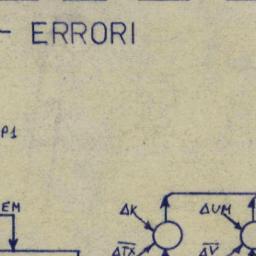 - ERRORI
P1
EM
ΔK ΔUM
ΔTX ΔV